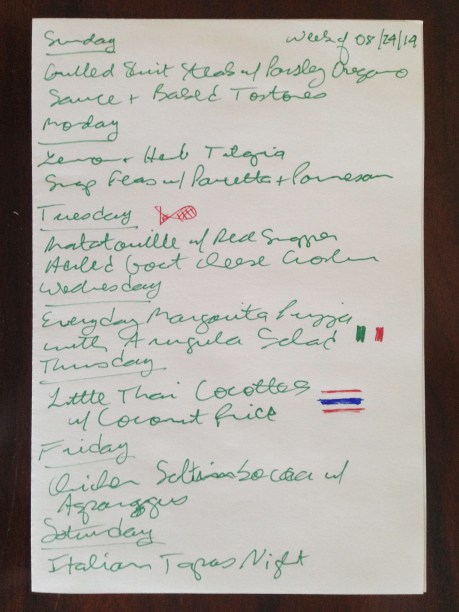 Sunday
Week of 08/24/14
Grilled Skirt Steak w/ Parsley Oregano
Sauce + Baked Tostones
Monday
Lemon + Herb Tilapia
Snap Peas w/ Pancetta + Parmesan
Tuesday
Ratatouille w/ Red Snapper
Herbed Goat Cheese Crostini
Wednesday
Everyday Margarita Pizza
with Arugula Salad
Thursday
Little Thai Cocottes
w/ Coconut Rice
Friday
Chicken Saltimbocca w/
Asparagus
Saturday
Italian Tapas Night